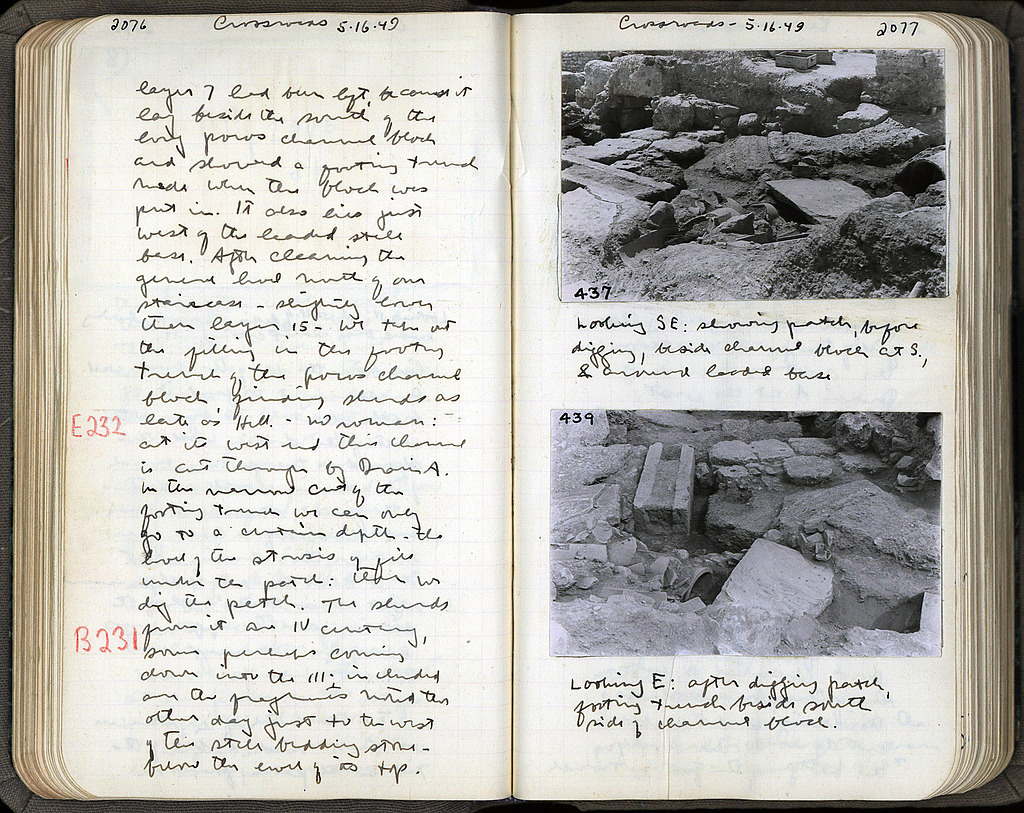 2076 Crossroads 5.16.49
layer 7 had been left because it
lay beside the south of the
long poros channel block
and showed a footing trench
made when the block was
put in. It also lies just
west of the leaded stele
base. After cleaning the
general level north of our
staircase - slightly lower
than layer 15 - we take out
the filling in the footing
trench of the poros channel
block, finding sherds as
late as Hell. - no roman:
E232
at its west end this channel
is cut through by Drain A.
In the narrow cut of the
footing trench we can only
go to a certain depth - the
level of the strosis of fill
under the patch: then we
dig the patch. The sherds
B231
from it are IV century,
some perhaps coming
down into the III: included
are the fragments noted the
other day just to the west
of this stele bedding stone -
below the level of its top.
Crossroads - 5.16.49 2077
437
Looking SE: showing patch, before
digging, beside channel block at S.,
& around leaded base
439
Looking E: after digging patch,
footing trench beside south
side of channel block.